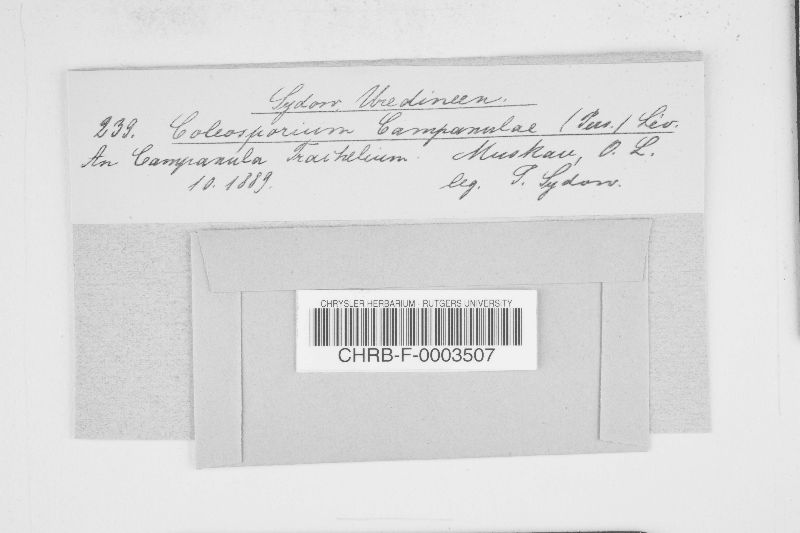 Sydow, Uredineen.
239. Coleosporium Campanulae (Pers.) Lév.
An Campanula Trachelium. Muskau, O. L.
10. 1889. leg. P. Sydow.
CHRYSLER HERBARIUM - RUTGERS UNIVERSITY
CHRB-F-0003507